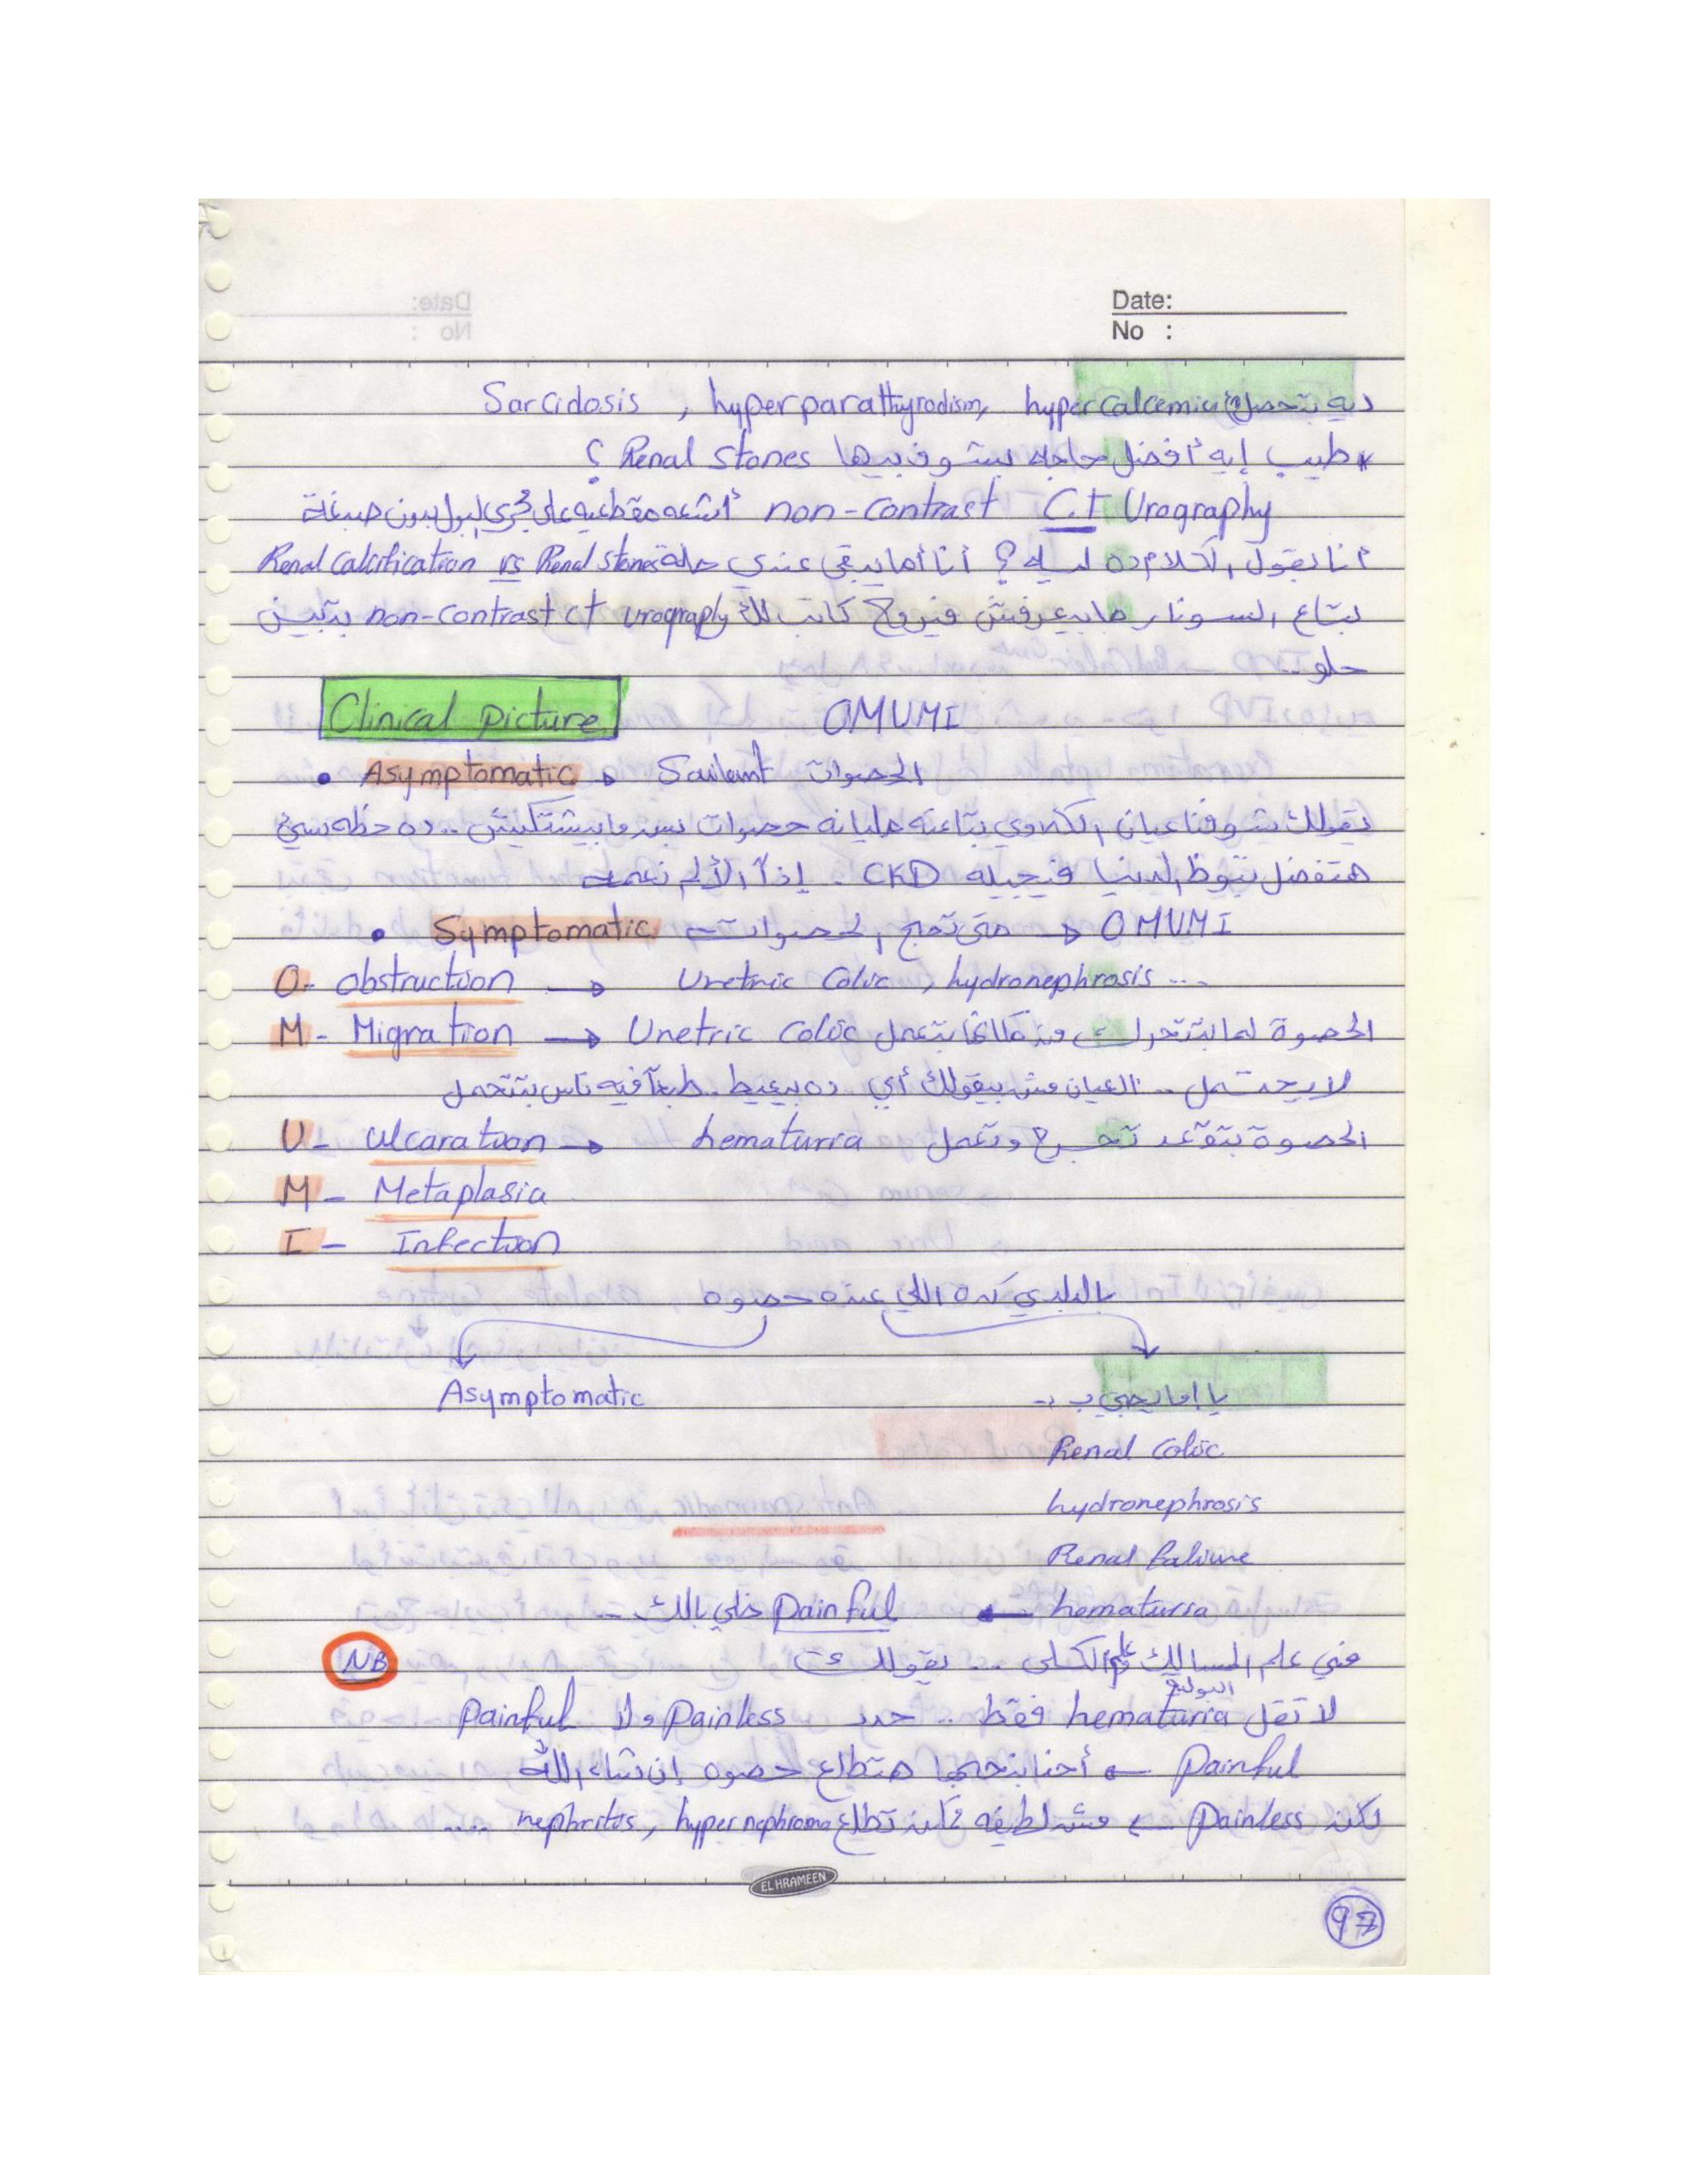 Date:
No :
ديه بتحصل في hypercalcemia, hyperparathyrodism, Sarcidosis
* طيب إيه أفضل حاجه بنشوف بيها Renal stones ؟
أشعه مقطعيه على مجرى البول بدون صبغة non-contrast C.T Urography
أنا بقول الكلام ده ليه؟ أنا أما يبقى عندي حالة Renal stones vs Renal calcification
بتاع السونار ما بيعرفش فنروح كاتب لك non-contrast ct urography بتبين
حلو..
Clinical picture OMUMI
• Asymptomatic → Sailent الحصوات
يقولك شوفنا عيان الكلاوي بتاعته مليانه حصوات بس مابيشتكيش .. ده حظه سيئ
هتفضل تبوظ الدنيا فتجيله CKD . إذاً الألم نعمة
• Symptomatic متى تهيج الحصوات → OMUMI
O- obstruction → Uretric Colic, hydronephrosis ...
M- Migration → Uretric Colic الحصوة لما بتتحرك من مكانها بتعمل
لا يحتمل .. العيان مش بيقولك أي ده بيعيط .. طبعاً فيه ناس بتتحمل
U- ulcaration → hematurra الحصوة بتقعد تجرح وتعمل
M- Metaplasia
I- Infection
بالبلدي كده اللي عنده حصوه
Asymptomatic يا إما يجي ب :-
Renal Colic
hydronephrosis
Renal faliure
hematurra ← Painful خلي بالك ..
NB في علم المسالك البولية وعلم الكلى ... يقولك
لا تقل hematurra فقط .. حدد Painless ولا Painful
Painful ← أحنا بنحبها هتطلع حصوه إن شاء الله
لكن Painless ← مش لطيفه ممكن تطلع nephritos, hypernephroma ....
EL HRAMEEN
97